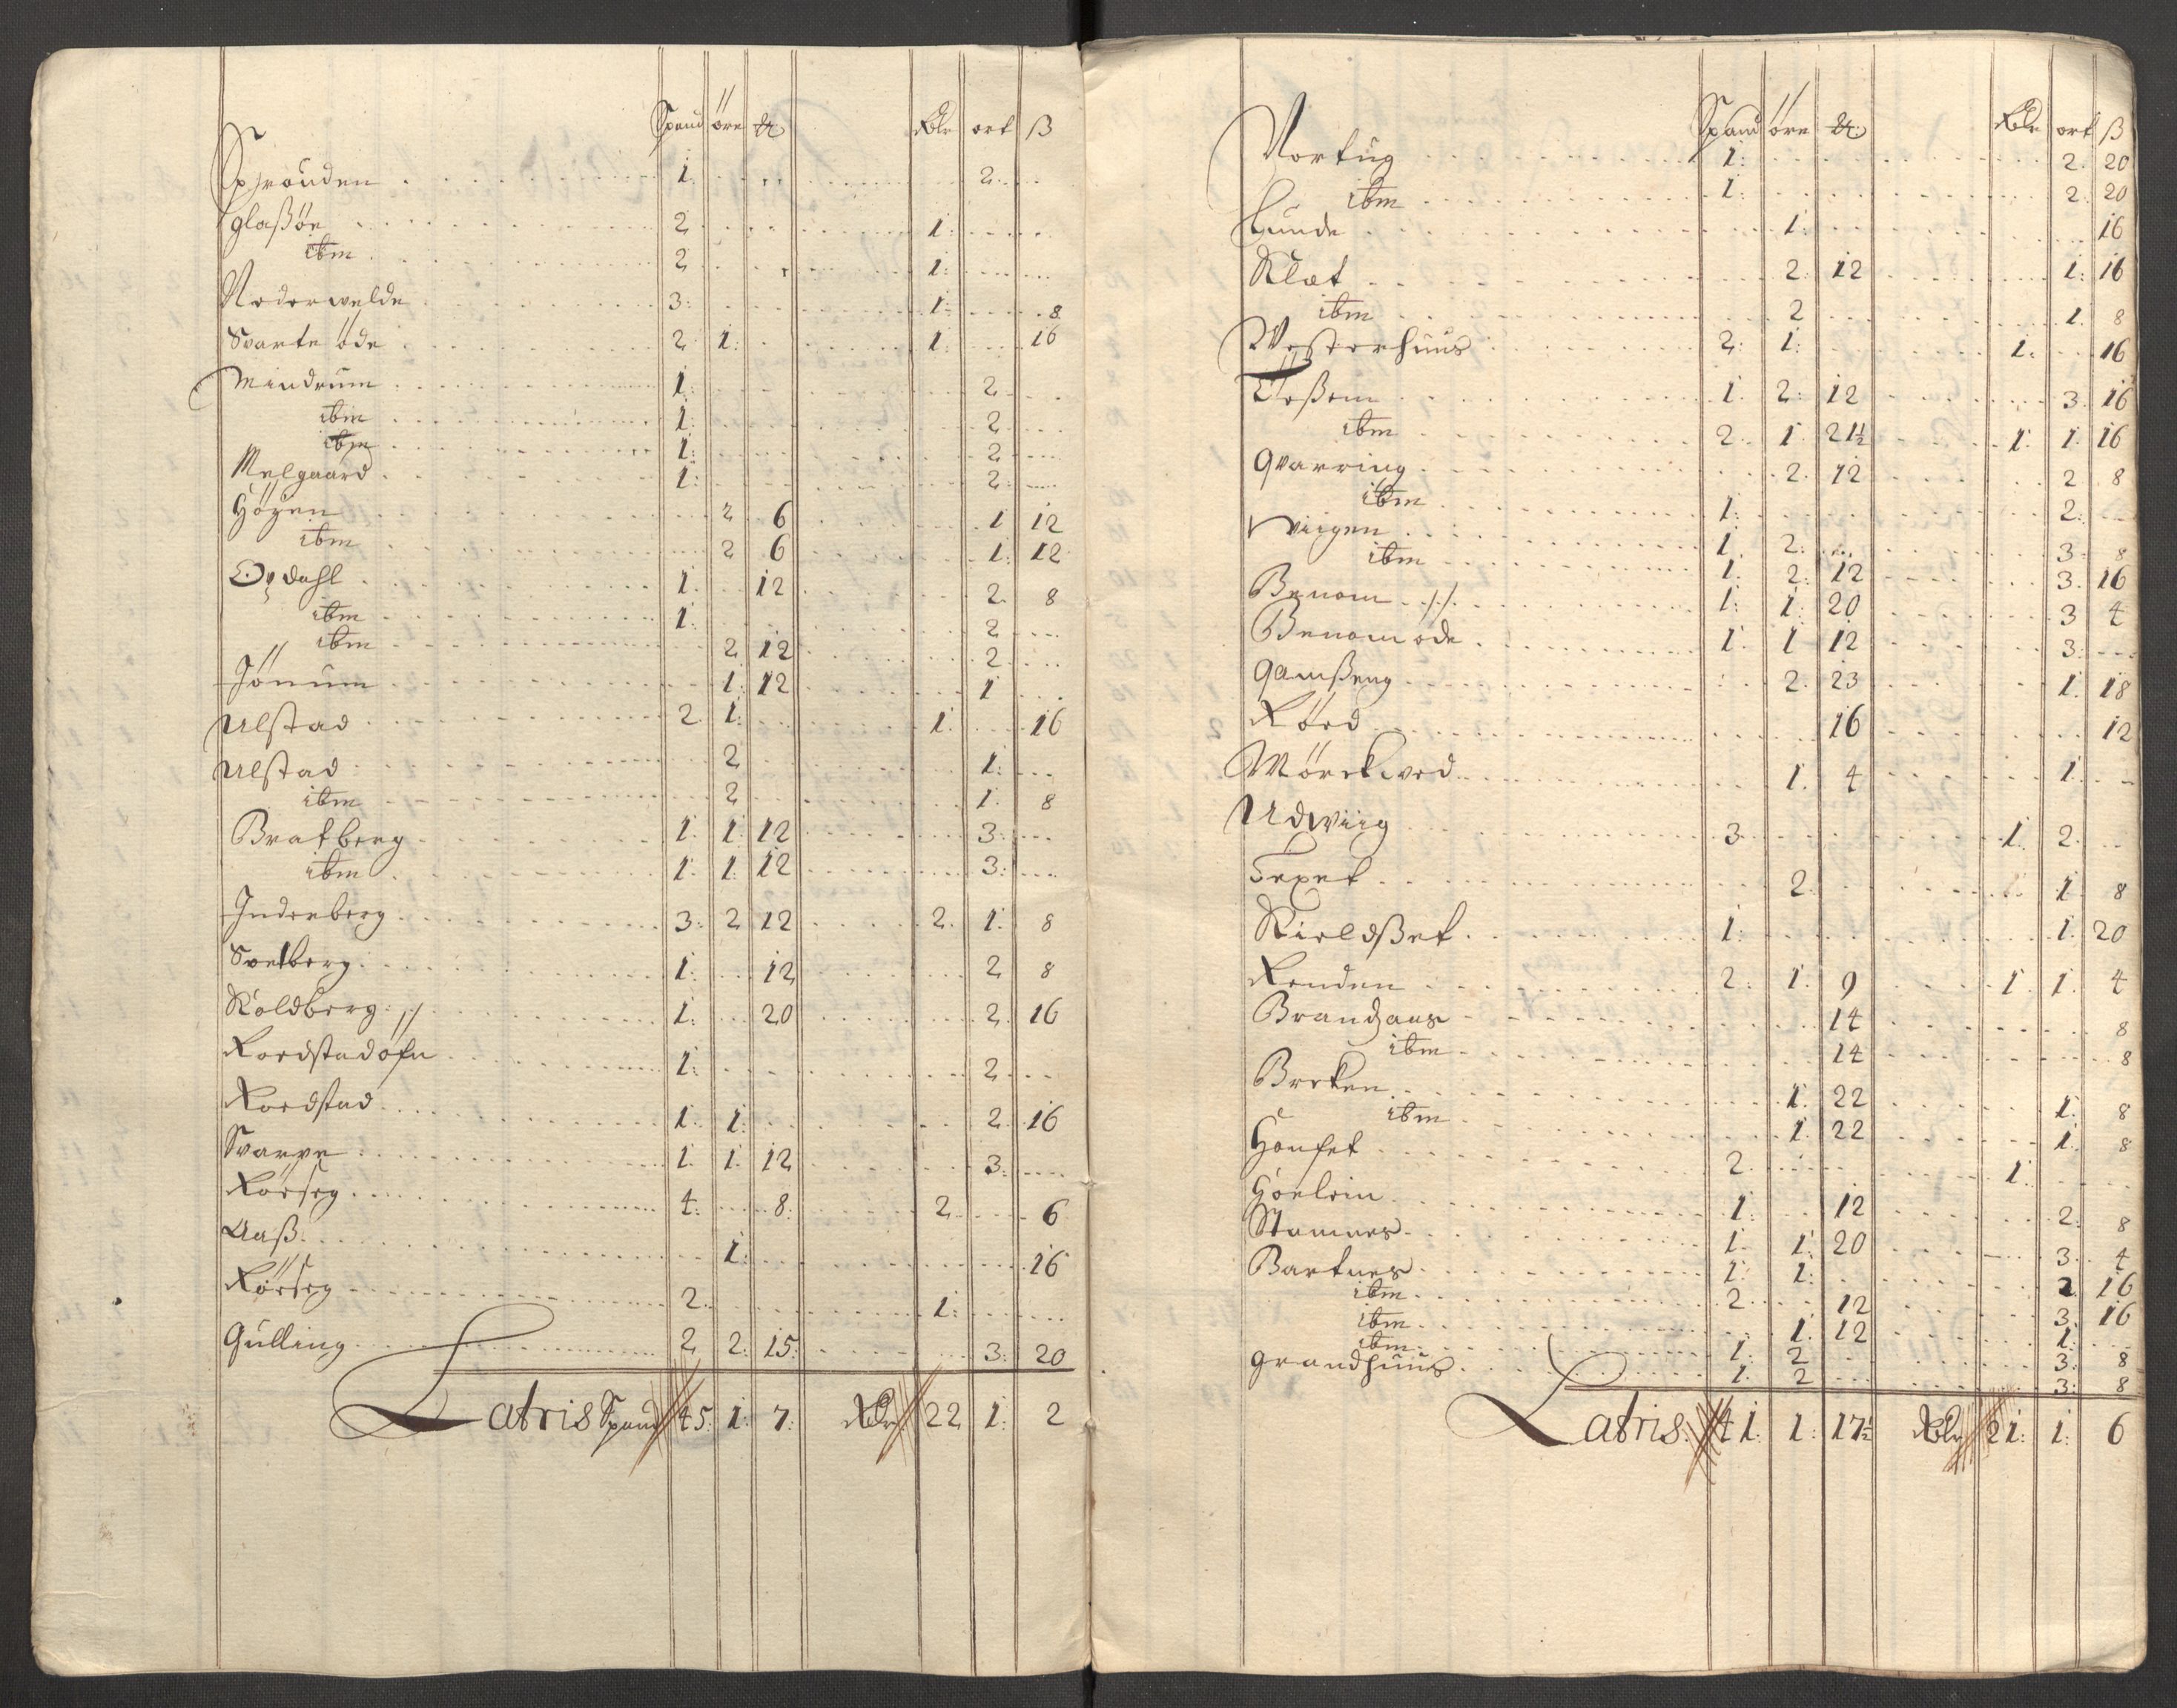 Spand öre ₰ Rdlr ort ß
Schrouden 1 2
glaßöe 2 1:
ibm 2 1:
Nederwelde 3: 1: 8
Svarte öde 2 1: 1: 16
Mindrum 1: 2
ibm 1: 2
ibm 1: 2
Melgaard 1: 2:
Höyen 2 6 1 12
ibm 2 6 1: 12
Opdahl 1: 12 2 8
ibm 1: 2
ibm 2 12 2
Jönum 1: 12 1
Ulstad 2 1: 1: 16
Ulstad 2 1:
ibm 2 1: 8
Bratberg 1: 1: 12 3:
ibm 1: 1: 12 3:
Inderberg 3: 2 12 2 1: 8
Svetberg 1: 12 2 8
Koldberg 1: 20 2 16
Roedstadöfn 1: 2
Roedstad 1: 1: 2 16
Svarve 1: 1: 12 3:
Rörseg 4: 8: 2 6
Aaß 1: 16
Rörseg 2 1:
Gulling 2 2: 15: 3: 20
Latris Spand 45: 1: 7: Rdlr 22 1: 2
Spand öre ₰ Rdlr ort ß
Nortug 1: 2 20
ibm 1: 2 20
Lunde 1: 16
Klæt 2: 12 1: 16
ibm 2 1: 8
Westerhuus 2: 1: 1: 16
Toßem 1: 2: 12 3: 16
ibm 2: 1: 21½ 1: 1: 16
Qvarring 2: 12 2 8
ibm 1: 2:
viigen 1: 2: 3: 8
ibm 1: 2: 12 3: 16
Benom 1: 1: 20 3 4
Benom öde 1: 1 12 3:
Gamßeng 2: 23 1: 18
Röed 16 12
Mörckved 1: 4 1:
Udviig 3 1: 2:
Texet 2 1: 8
Kieldßet 1: 1: 20
Renden 2: 1: 9 1: 1: 4
Brandzaas 14 8
ibm 14 8
Brcken 1: 22 1: 8
ibm 1: 22 1: 8
Homset 2 1:
Hörlein 1: 12 2 8
Stamnes 1: 1: 20 3: 4
Bartnes 1: 1: 2 16
ibm 2 12 3: 16
ibm 1: 12 1:
ibm 1: 2 3: 8
grandhuus 1: 2 3: 8
Latris 41: 1: 17½ Rdlr 21: 1: 6